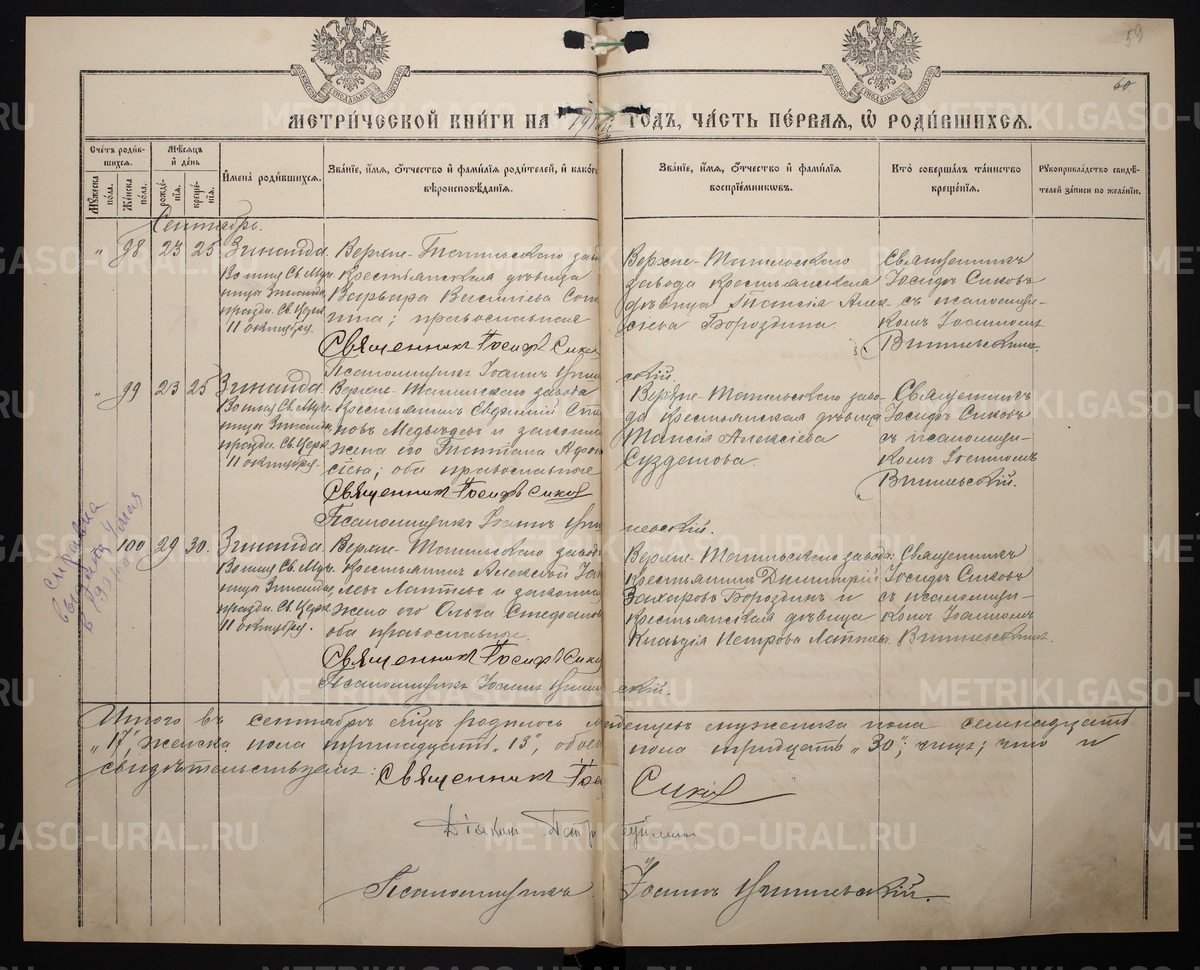 59
60
МЕТРИ́ЧЕСКОЙ КНИ́ГИ НА ГОДЪ, ЧА́СТЬ ПЕ́РВАЯ, Ѡ РОДИ́ВШИХСЯ.
Сче́тъ роди́вшихся.
Му́жеска по́ла.
Же́нска по́ла.
Мѣ́сяцъ и́ де́нь
рожде́нія.
креще́нія.
Имена̀ роди́вшихся.
Зва́ніе, и́мя, о́тчество и́ фами́лія роди́телей, и́ како́го
вѣроисповѣ́данія.
Зва́ніе, и́мя, о́тчество и́ фами́лія
воспріе́мниковъ.
Кто̀ соверша́лъ та́инство
креще́нія.
Рукоприкла́дство свидѣ́телей за́писи по жела́нію.
Сентябрь.
" 98 23 25 Зинаида
Во имя Св. Муче-
ница Зинаида,
праздн. Св. Церк.
11 октября.
Верхне-Тагильскаго заво
крестьянская дѣвица
Варвара Васильева
; православная
Священникъ Іосифъ Сико
Псаломщикъ Іоаннъ
Верхне-Тагильскаго
завода крестьянская
дѣвица Таисія Алек-
сіева Бороздина.
Священникъ
Іосифъ Сиковъ
съ псаломщи-
комъ Іоанномъ
" 99 23 25 Зинаида
Во имя Св. Муче-
ница Зинаида,
праздн. Св. Церк.
11 октября.
Верхне-Тагильскаго завода
крестьянинъ Евфимій
новъ Медвѣдевъ и законна
жена его Татіана
сіева; оба православные
Священникъ Іосифъ Сиков
Псаломщикъ Іоаннъ
Верхне-Тагильскаго заво-
да крестьянская дѣвица
Таисія Алексіева
Священникъ
Іосифъ Сиковъ
съ псаломщи-
комъ Іоанномъ
справка
выдана 4 мая
100 29 30. Зинаида
Во имя Св. Муче-
ница Зинаида,
праздн. Св. Церк.
11 октября.
Верхне-Тагильскаго завода
крестьянинъ Алексѣй
левъ Лаптевъ и законна
жена его Ольга Стефанов
оба православные.
Священникъ Іосифъ Сико
Псаломщикъ Іоаннъ
Верхне-Тагильскаго завода:
крестьянинъ Димитрій
Захаровъ Бороздинъ и
крестьянская дѣвица
Петрова Лаптева.
Священникъ
Іосифъ Сиковъ
съ псаломщи-
комъ Іоанномъ
Итого въ сентябрѣ мцѣ родилось младенцевъ мужеска пола семнадцать
"17", женска пола тринадцать "13", обоего пола тридцать "30"; чему; что и
свидѣтельствуемъ: Священникъ Іос Сиков
Діаконъ
Псаломщикъ Іоаннъ
METRIKI.GASO-URAL.RU